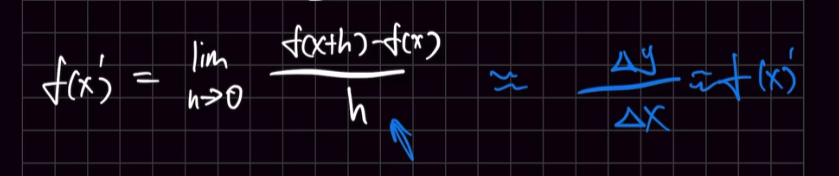 f(x)' = lim h→0 f(x+h)-f(x) / h ≈ Δy / Δx ≈ f(x)'